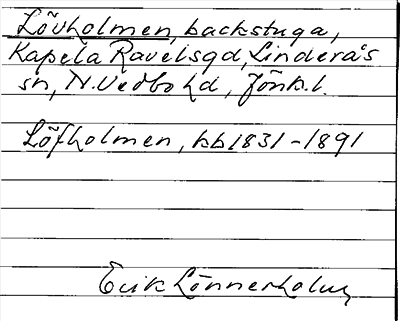 Lövholmen, backstuga,
Kapela Ravelsgd, Linderås
sn, N. Vedbo hd, Jönk. l.
Löfholmen, kb 1831-1891
Erik Lönnerholm